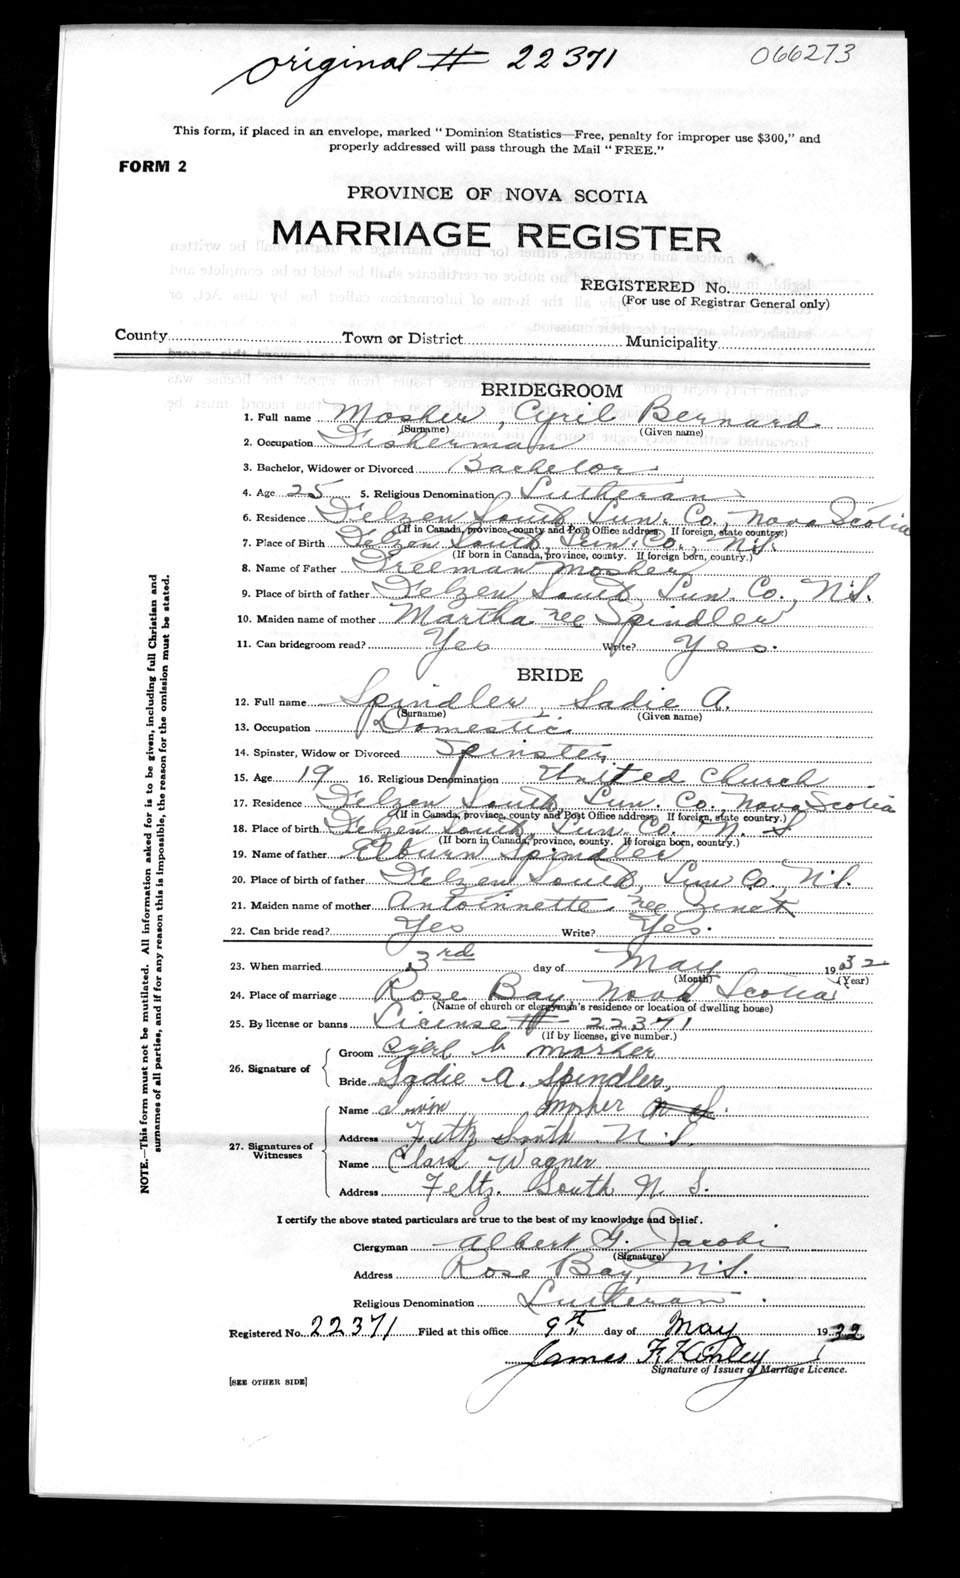 original # 22371
066273
This form, if placed in an envelope, marked "Dominion Statistics—Free, penalty for improper use $300," and
properly addressed will pass through the Mail "FREE."
FORM 2
PROVINCE OF NOVA SCOTIA
MARRIAGE REGISTER
REGISTERED No.
(For use of Registrar General only)
County Town or District Municipality
BRIDEGROOM
1. Full name Mosher, Cyril Bernard
(Surname) (Given name)
2. Occupation Fisherman
3. Bachelor, Widower or Divorced Bachelor
4. Age 25 5. Religious Denomination Lutheran
6. Residence Felzen South, Lun. Co., Nova Scotia
(If in Canada, province, county and Post Office address. If foreign, state country.)
7. Place of Birth Felzen South, Lun. Co., N.S.
(If born in Canada, province, county. If foreign born, country.)
8. Name of Father Freeman Mosher
9. Place of birth of father Felzen South, Lun. Co., N.S.
10. Maiden name of mother Martha nee Spindler
11. Can bridegroom read? Yes Write? Yes.
BRIDE
12. Full name Spindler, Sadie A.
(Surname) (Given name)
13. Occupation Domestic
14. Spinster, Widow or Divorced Spinster
15. Age 19 16. Religious Denomination United Church
17. Residence Felzen South, Lun. Co., Nova Scotia
(If in Canada, province, county and Post Office address. If foreign, state country.)
18. Place of birth Felzen South, Lun. Co. N. S
(If born in Canada, province, county. If foreign born, country.)
19. Name of father Elburn Spindler
20. Place of birth of father Felzen South, Lun Co., N.S.
21. Maiden name of mother Antoinnette nee Zinck
22. Can bride read? Yes Write? Yes.
23. When married 3rd day of May 1932
(Month) (Year)
24. Place of marriage Rose Bay, Nova Scotia
(Name of church or clergyman's residence or location of dwelling house)
25. By license or banns License # 22371
(If by license, give number.)
26. Signature of
Groom Cyril b mosher
Bride Sadie A. Spindler,
27. Signatures of Witnesses
Name Irvin mosher
Address South N.S.
Name Clara Wagner
Address Feltz. South N. S.
I certify the above stated particulars are true to the best of my knowledge and belief.
Clergyman Albert G. Jacobi
(Signature)
Address Rose Bay, N.S.
Religious Denomination Lutheran
Registered No. 22371 Filed at this office 9th day of May 1932
James F. Kinley
Signature of Issuer of Marriage Licence.
[SEE OTHER SIDE]
NOTE.—This form must not be mutilated. All information asked for is to be given, including full Christian and
surnames of all parties, and if for any reason this is impossible, the reason for the omission must be stated.